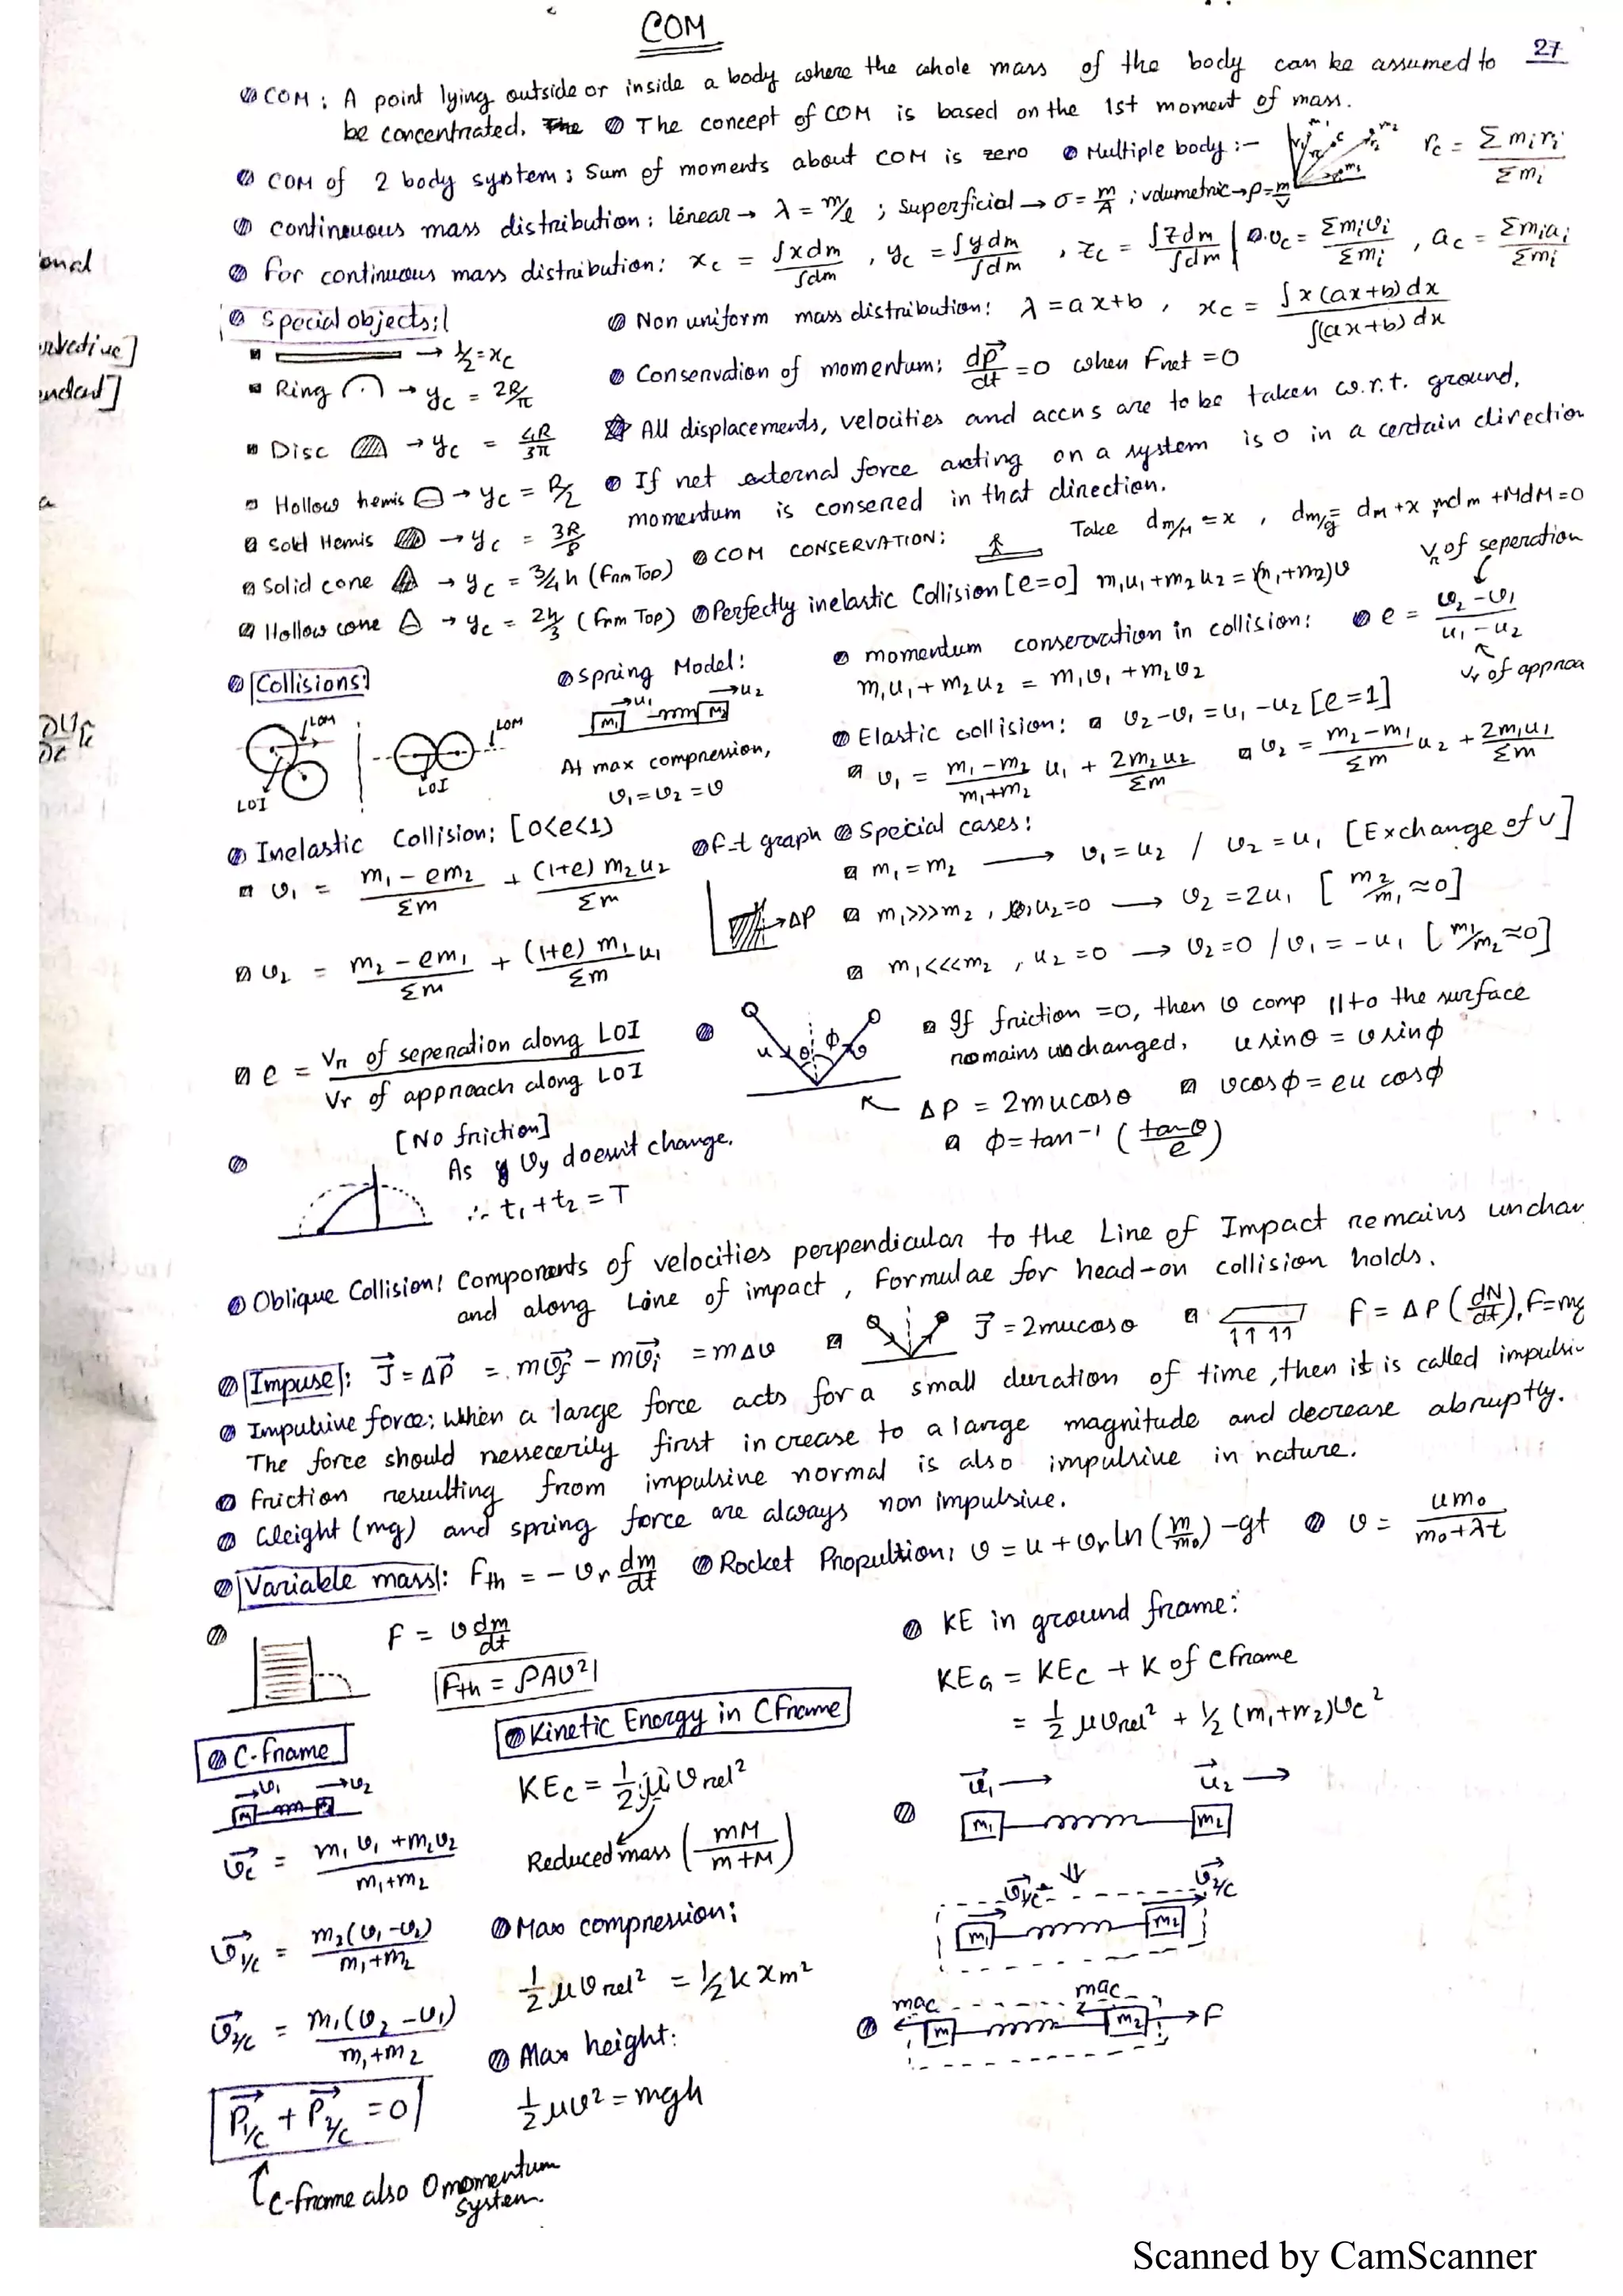 COM
27
COM: A point lying outside or inside a body where the whole mass of the body can be assumed to
be concentrated. The concept of COM is based on the 1st moment of mass.
COM of 2 body system: Sum of moments about COM is zero Multiple body :- r_c = Σm_i r_i / Σm_i
Continuous mass distribution: linear → λ = m/l ; Superficial → σ = m/A ; volumetric → ρ = m/V
For continuous mass distribution: x_c = ∫xdm/∫dm , y_c = ∫ydm/∫dm , z_c = ∫zdm/∫dm | v_c = Σm_i v_i / Σm_i , a_c = Σm_i a_i / Σm_i
Special objects:
→ L/2 = x_c
Ring → y_c = 2R/π
Disc → y_c = 4R/3π
Hollow hemis → y_c = R/2
Solid Hemis → y_c = 3R/8
Solid cone → y_c = 3/4 h (From Top)
Hollow cone → y_c = 2h/3 (From Top)
Non uniform mass distribution: λ = ax+b , x_c = ∫x(ax+b)dx / ∫(ax+b)dx
Conservation of momentum: dp/dt = 0 when Fnet = 0
All displacements, velocities and accns are to be taken w.r.t. ground.
If net external force acting on a system is 0 in a certain direction
momentum is conserved in that direction.
COM CONSERVATION: Take d_m/M = x , d_m/g = d_M + x mdm + MdM = 0
Perfectly inelastic Collision [e=0] m₁u₁ + m₂u₂ = (m₁+m₂)v
Collisions:
LOM
LOI
LOM
LOI
Spring Model:
→u₁ →u₂
m₁ m₂
At max compression,
v₁ = v₂ = v
momentum conservation in collision:
m₁u₁ + m₂u₂ = m₁v₁ + m₂v₂
e = v₂-v₁ / u₁-u₂
Vr of seperation
Vr of approa
Elastic collision: v₂-v₁ = u₁-u₂ [e=1]
v₁ = m₁-m₂/m₁+m₂ u₁ + 2m₂u₂/Σm v₂ = m₂-m₁/Σm u₂ + 2m₁u₁/Σm
Inelastic Collision: [0<e<1]
v₁ = m₁-em₂/Σm + (1+e)m₂u₂/Σm
v₂ = m₂-em₁/Σm + (1+e)m₁u₁/Σm
F-t graph
→ΔP
Special cases:
m₁ = m₂ → v₁ = u₂ / v₂ = u₁ [Exchange of v]
m₁>>>m₂ , u₂=0 → v₂ = 2u₁ [m₂/m₁ ≈0]
m₁<<<m₂ , u₂=0 → v₂=0 / v₁ = -u₁ [m₁/m₂ ≈0]
e = Vr of seperation along LOI / Vr of approach along LOI
u θ φ v
If friction =0, then v comp || to the surface
remains unchanged, u sinθ = v sinφ
ΔP = 2mucosθ vcosφ = eu cosφ
φ = tan⁻¹ (tanθ/e)
[No friction]
As Vy doesn't change.
∴ t₁ + t₂ = T
Oblique Collision: Components of velocities perpendicular to the Line of Impact remains unchan
and along Line of impact, Formulae for head-on collision holds.
Impuse: J = ΔP = mvf - mvi = mΔv J = 2mucosθ F = ΔP (dN/dt), F=mg
Impulsive force: When a large force acts for a small duration of time, then it is called impulsiv
The force should nessecerily first increase to a large magnitude and decrease abruptly.
Friction resulting from impulsive normal is also impulsive in nature.
Weight (mg) and spring force are always non impulsive.
Variable mass: Fth = -Vr dm/dt Rocket Propultion: v = u + vr ln(m/m₀) - gt v = um₀/m₀+λt
F = v dm/dt
Fth = ρAv²
KE in ground frame:
KE_G = KE_C + K of C frame
= 1/2 μVrel² + 1/2 (m₁+m₂)Vc²
C-frame
→v₁ →v₂
v_c = m₁v₁ + m₂v₂ / m₁+m₂
v₁/c = m₂(v₁-v₂) / m₁+m₂
v₂/c = m₁(v₂-v₁) / m₁+m₂
P₁/c + P₂/c = 0
C-frame also 0 momentum
system.
Kinetic Energy in C Frame
KE_C = 1/2 μ Vrel²
Reduced mass (mM/m+M)
Max compression:
1/2 μVrel² = 1/2 k xm²
Max height:
1/2 μv² = mgh
u₁ → u₂ →
m₁ m₂
v₁/c v₂/c
m₁ m₂
mac mac
m₁ m₂ → F
onal
rvative]
ended]
Scanned by CamScanner